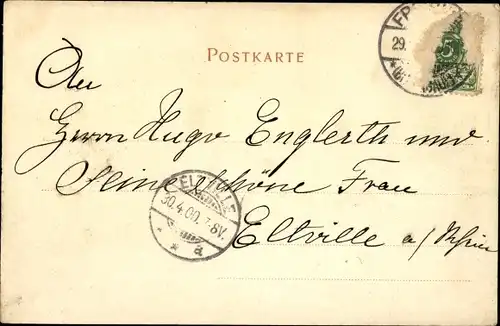 POSTKARTE
An
Herrn Hugo Englerth und
Seine schöne Frau
Eltville a/Rhein
5
29.
ELTVILLE
30.4.00. 7-8V.
a